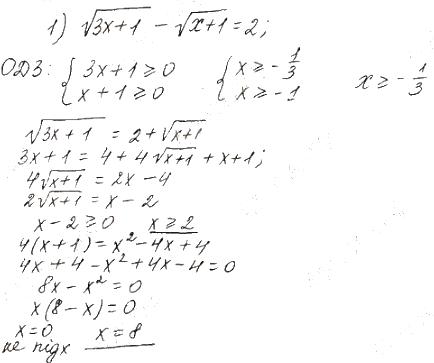 1) √(3x+1) − √(x+1) = 2;
ОДЗ: { 3x+1 ≥ 0 { x ≥ −1/3 x ≥ −1/3
{ x+1 ≥ 0 { x ≥ −1
√(3x+1) = 2+√(x+1)
3x+1 = 4+4√(x+1) + x+1;
4√(x+1) = 2x−4
2√(x+1) = x−2
x−2 ≥ 0 x ≥ 2
4(x+1) = x²−4x+4
4x+4−x²+4x−4=0
8x−x²=0
x(8−x)=0
x=0 x=8
не підх